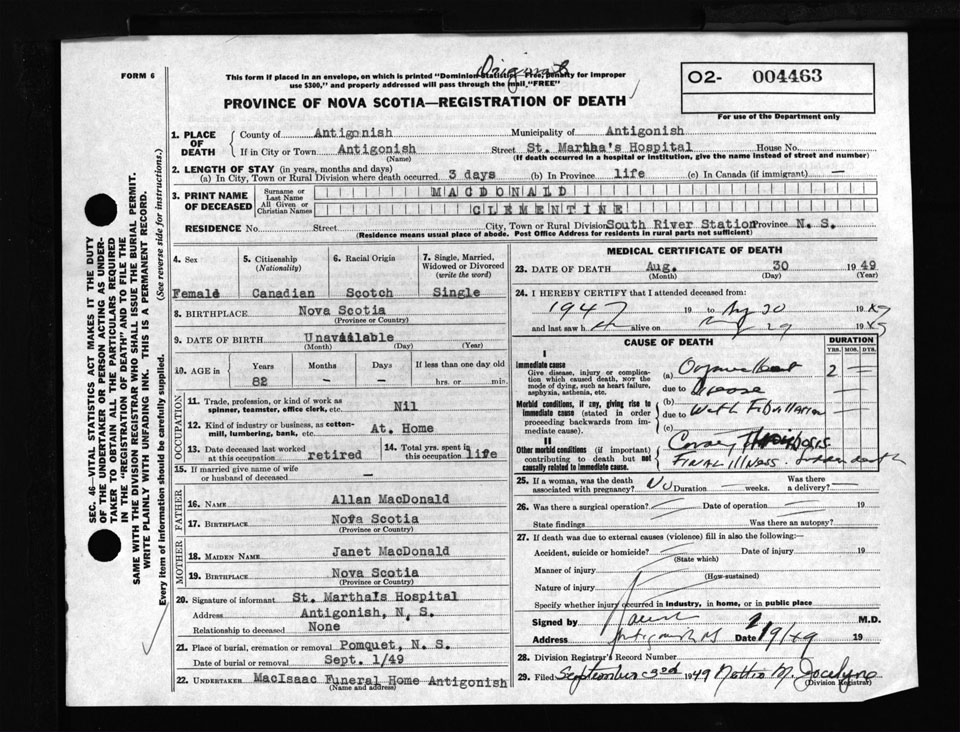 FORM 6
Original
This form if placed in an envelope, on which is printed "Dominion Statistics Free, penalty for improper
use $300," and properly addressed will pass through the mail, "FREE"
O2- 004463
For use of the Department only
PROVINCE OF NOVA SCOTIA—REGISTRATION OF DEATH
1. PLACE OF DEATH County of Antigonish Municipality of Antigonish
If in City or Town Antigonish Street St. Martha's Hospital House No.
(Name) (If death occurred in a hospital or institution, give the name instead of street and number)
2. LENGTH OF STAY (in years, months and days)
(a) In City, Town or Rural Division where death occurred 3 days (b) In Province life (c) In Canada (if immigrant) —
3. PRINT NAME OF DECEASED Surname or Last Name MACDONALD
All Given or Christian Names CLEMENTINE
RESIDENCE No. Street City, Town or Rural Division South River Station Province N. S.
(Residence means usual place of abode. Post Office Address for residents in rural parts not sufficient)
4. Sex 5. Citizenship (Nationality) 6. Racial Origin 7. Single, Married, Widowed or Divorced (write the word)
Female Canadian Scotch Single
8. BIRTHPLACE Nova Scotia
(Province or Country)
9. DATE OF BIRTH Unavailable
(Month) (Day) (Year)
10. AGE in Years Months Days If less than one day old
82 – – hrs. or min.
OCCUPATION
11. Trade, profession, or kind of work as spinner, teamster, office clerk, etc. Nil
12. Kind of industry or business, as cotton-mill, lumbering, bank, etc. At. Home
13. Date deceased last worked at this occupation retired 14. Total yrs. spent in this occupation life
15. If married give name of wife or husband of deceased –
FATHER
16. Name Allan MacDonald
17. Birthplace Nova Scotia
(Province or Country)
MOTHER
18. Maiden Name Janet MacDonald
19. Birthplace Nova Scotia
(Province or Country)
20. Signature of informant St. Martha's Hospital
Address Antigonish, N. S.
Relationship to deceased None
21. Place of burial, cremation or removal Pomquet, N. S.
Date of burial or removal Sept. 1/49
22. UNDERTAKER MacIsaac Funeral Home Antigonish
(Name and address)
MEDICAL CERTIFICATE OF DEATH
23. DATE OF DEATH Aug. 30 1949
(Month) (Day) (Year)
24. I HEREBY CERTIFY that I attended deceased from:
1947 19 to Aug 30 1949
and last saw h alive on Aug 29 1949
CAUSE OF DEATH DURATION
YRS. MOS. DYS.
I
Immediate cause
Give disease, injury or complication which caused death, NOT the mode of dying, such as heart failure, asphyxia, asthenia, etc.
(a) Heart 2 — —
due to disease
Morbid conditions, if any, giving rise to immediate cause (stated in order proceeding backwards from immediate cause).
(b)
due to with Fibrillation
(c)
II
Other morbid conditions (if important) contributing to death but not causally related to immediate cause.
Thrombosis
FINAL ILLNESS. Sudden death
25. If a woman, was the death associated with pregnancy? No Duration weeks. Was there a delivery?
26. Was there a surgical operation? Date of operation 19
State findings Was there an autopsy?
27. If death was due to external causes (violence) fill in also the following:—
Accident, suicide or homicide? Date of injury 19
(State which)
Manner of injury
(How sustained)
Nature of injury
Specify whether injury occurred in industry, in home, or in public place
Signed by M.D.
Address Antigonish NS Date 2/9/49 19
28. Division Registrar's Record Number
29. Filed September 3rd 1949 Nettie M. Jocelyne
(Division Registrar)
SEC. 46—VITAL STATISTICS ACT MAKES IT THE DUTY
OF THE UNDERTAKER OR PERSON ACTING AS UNDER-
TAKER TO OBTAIN ALL THE PARTICULARS REQUIRED
IN THE "REGISTRATION OF DEATH" AND TO FILE THE
SAME WITH THE DIVISION REGISTRAR WHO SHALL ISSUE THE BURIAL PERMIT.
WRITE PLAINLY WITH UNFADING INK. THIS IS A PERMANENT RECORD.
Every item of information should be carefully supplied. (See reverse side for instructions.)